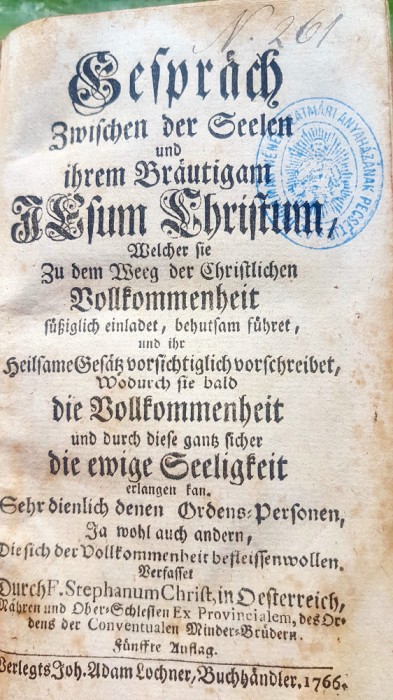 N. 261
Gespräch
Zwischen der Seelen
und
ihrem Bräutigam
JEsum Christum,
Welcher sie
Zu dem Weeg der Christlichen
Vollkommenheit
süßiglich einladet, behutsam führet,
und ihr
Heilsame Gesätz vorsichtiglich vorschreibet,
Wodurch sie bald
die Vollkommenheit
und durch diese gantz sicher
die ewige Seeligkeit
erlangen kan.
Sehr dienlich denen Ordens-Personen,
Ja wohl auch andern,
Die sich der Vollkommenheit befleissen wollen.
Verfasset
Durch F. Stephanum Christ, in Oesterreich,
Mähren und Ober-Schlesien Ex Provincialem, des Or-
dens der Conventualen Minder-Brüdern.
Fünffte Auflag.
Verlegts Joh. Adam Lochner, Buchhändler, 1766.
SZATMÁRI ANYAHÁZÁNAK PECSÉTJE